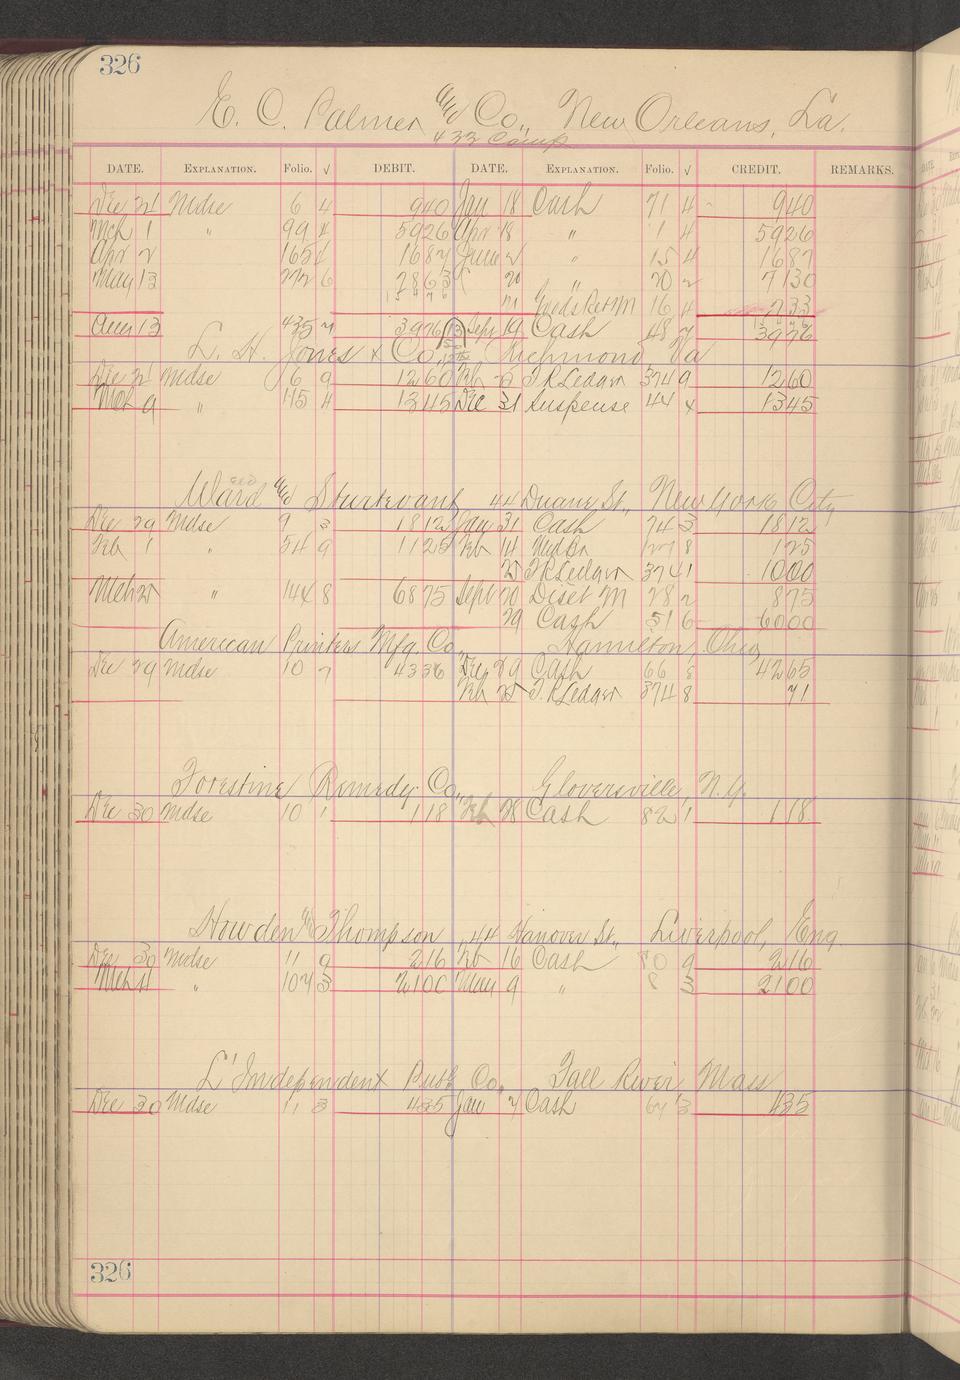 326
E. C. Palmer and Co., New Orleans, La.
433 Camp
DATE. EXPLANATION. Folio. √ DEBIT. DATE. EXPLANATION. Folio. √ CREDIT. REMARKS.
Dec 21 Mdse 6 4 940 Jan 18 Cash 71 4 940
Mch 1 " 99 4 5926 Apr 18 " 1 4 5926
Apr 2 " 165 1687 June 2 " 15 4 1687
May 13 272 6 7863 20 " 20 2 7130
21 Goods Ret M 16 4 733
Aug 13 435 7 3976 Sept 19 Cash 48 7 3976
L. H. Jones & Co., Richmond Va
Dec 21 Mdse 6 9 1260 Feb T. R. Ledger 374 9 1260
Mch 9 " 115 4 1345 Dec 31 Suspense 44 x 1345
Ward and Sturtevant, 44 Duane St., New York City
Dec 29 Mdse 9 3 1812 Jan 31 Cash 74 3 1812
Feb 1 " 54 9 1125 Feb 14 127 8 125
25 T. R. Ledger 374 1 1000
Mch 25 " 144 8 6875 Sept 20 Disct M 28 2 875
29 Cash 51 6 6000
American Printers Mfg. Co., Hamilton, Ohio
Dec 29 Mdse 10 7 4336 Dec 29 Cash 66 8 4265
Feb 25 T. R. Ledger 374 8 71
Forestine Remedy Co., Gloversville, N.Y.
Dec 30 Mdse 10 1 118 Feb 28 Cash 82 1 118
Howden and Thompson, 44 Hanover St., Liverpool, Eng
Dec 30 Mdse 11 9 216 Feb 16 Cash 80 9 216
Mch 11 " 107 3 2100 May 9 " 8 3 2100
L'Independent Pub Co., Fall River Mass
Dec 30 Mdse 11 3 435 Jan 7 Cash 67 3 435
326